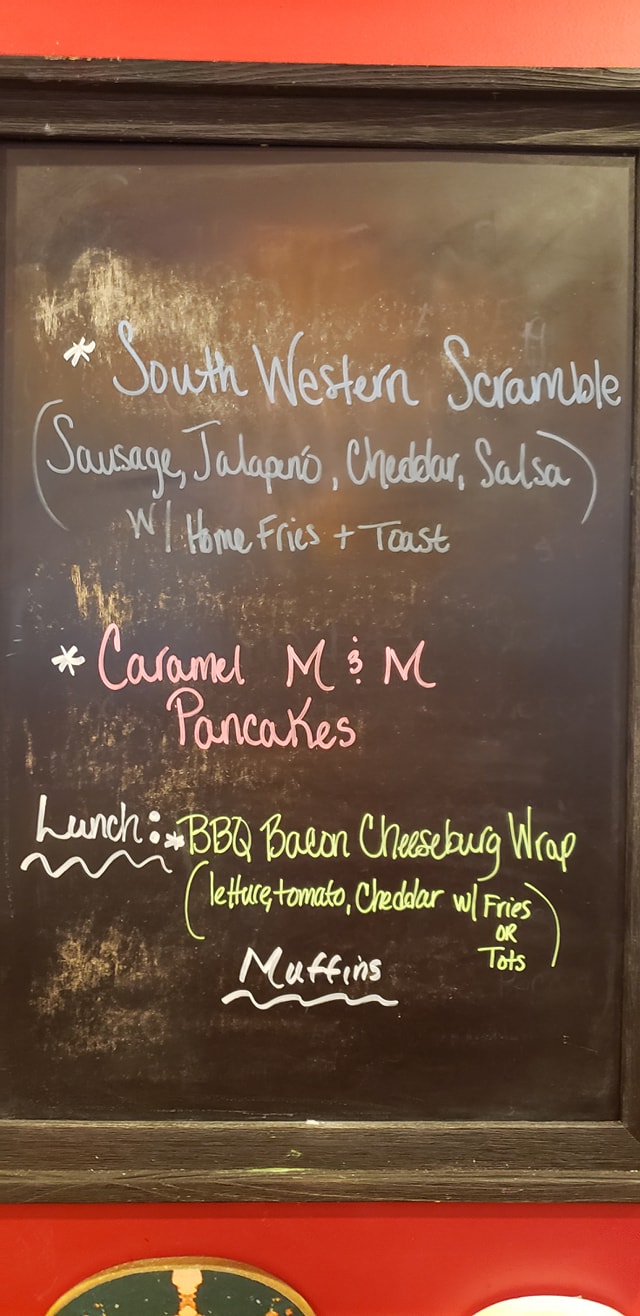 * South Western Scramble
(Sausage, Jalapeño, Cheddar, Salsa)
w/ Home Fries + Toast
* Caramel M & M
Pancakes
Lunch: * BBQ Bacon Cheeseburg Wrap
(lettuce, tomato, Cheddar w/ Fries
OR
Tots)
Muffins